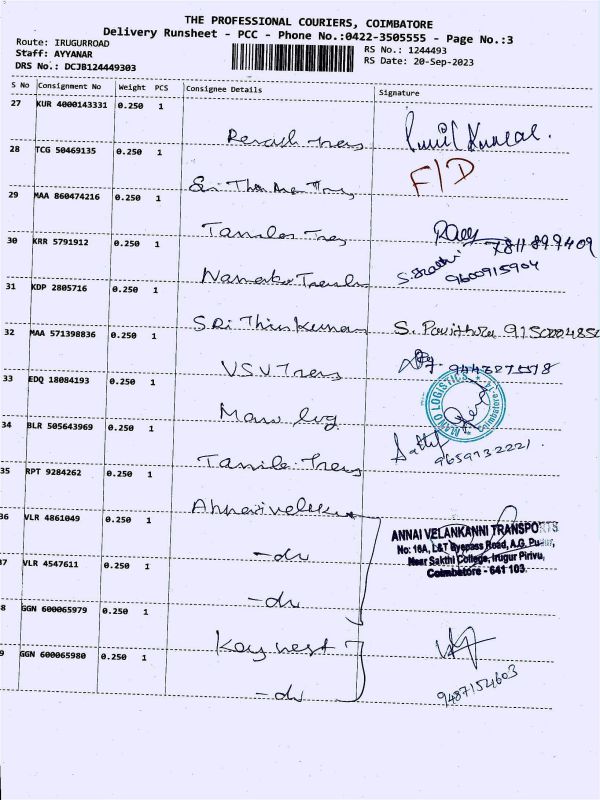 THE PROFESSIONAL COURIERS, COIMBATORE
Delivery Runsheet - PCC - Phone No.:0422-3505555 - Page No.:3
Route: IRUGURROAD
RS No.: 1244493
Staff: AYYANAR
RS Date: 20-Sep-2023
DRS No.: DCJB124449303
S No Consignment No Weight PCS Consignee Details Signature
27 KUR 4000143331 0.250 1
28 TCG 50469135 0.250 1 F/D
29 MAA 860474216 0.250 1
Tamilas 7811899409
30 KRR 5791912 0.250 1
9600915904
31 KDP 2805716 0.250 1
Sri S. Pavithra
32 MAA 571398836 0.250 1
VSV Trans
33 EDQ 18084193 0.250 1
MAWO LOGISTICS
Mawo log
34 BLR 505643969 0.250 1
9659132221
35 RPT 9284262 0.250 1
Annaivelan
36 VLR 4861049 0.250 1
ANNAI VELANKANNI TRANSPORTS
No: 16A, L&T Byepass Road, A.G. Pudur,
Near Sakthi College, Irugur Pirivu,
Coimbatore - 641 103.
-do
37 VLR 4547611 0.250 1
-do
8 GGN 600065979 0.250 1
Kay west
9 GGN 600065980 0.250 1
9487154603
-do